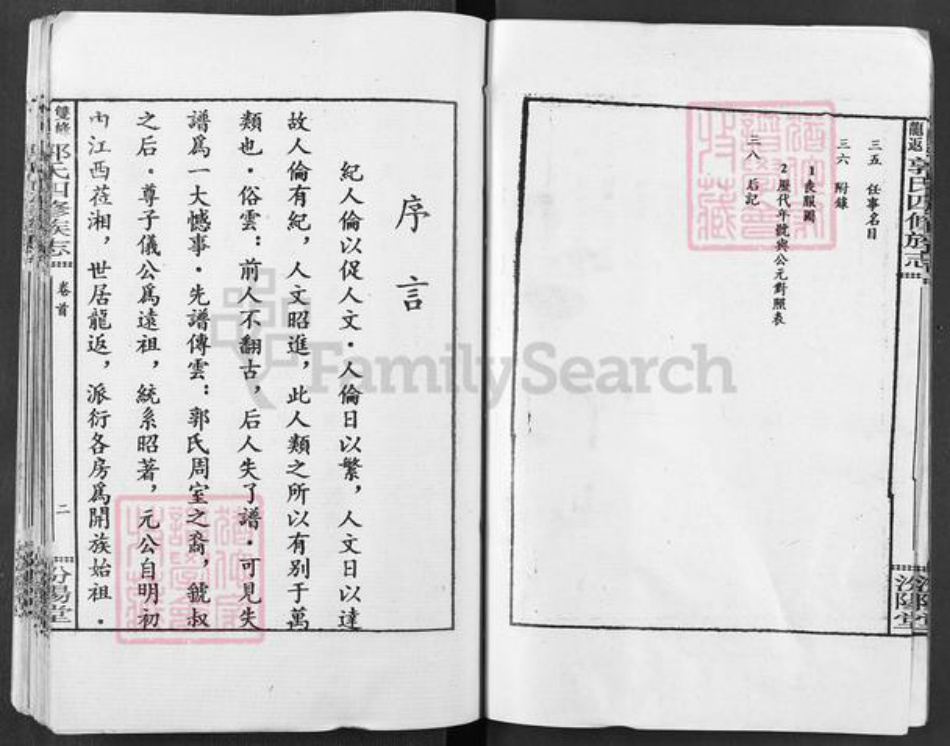 龍返 郭氏四修族志
汾陽堂
三五 任事名目
三六 附錄
1 喪服圖
2 歷代年號與公元對照表
三八 后記
序言
紀人倫以促人文．人倫日以繁，人文日以達
故人倫有紀，人文昭進，此人類之所以有别于萬
類也．俗雲：前人不翻古，后人失了譜．可見失
譜爲一大憾事．先譜傳雲：郭氏周室之裔，虢叔
之后．尊子儀公爲遠祖，統系昭著，元公自明初
由江西莅湘，世居龍返，派衍各房爲開族始祖．
雙修 郭氏四修族志
卷首
二
汾陽堂
FamilySearch